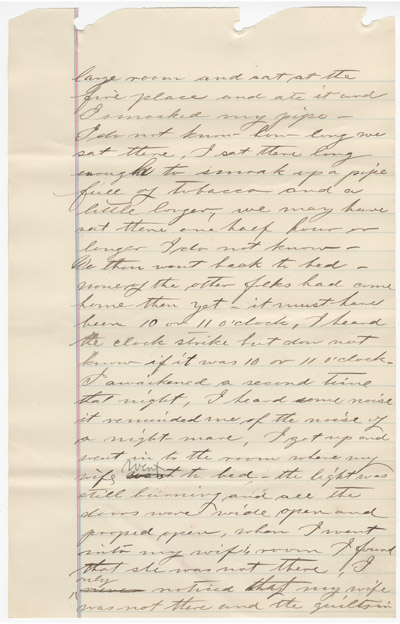 large room and sat, at the
fire place and ate it and
I smoaked my pipe -
I do not know how long we
sat there, I sat there long
enough to smoak up a pipe
full of tobacco and a
little longer, we may have
sat there one half hour or
longer I do not know -
We then went back to bed -
none of the other folks had come
home then yet - it must have
been 10 or 11 o'clock, I heard
the clock strike but don not
know if it was 10 or 11 o'clock -
I awakened a second time
that night, I heard some noise
it reminded me of the noise of
a night mare, I got up and
went in to the room where my
wife went to bed - the light was
still burning and all the
doors were wide open and
proped open, when I went
into my wife's room I found
that she was not there, I
only noticed that my wife
was not there and the quilts in